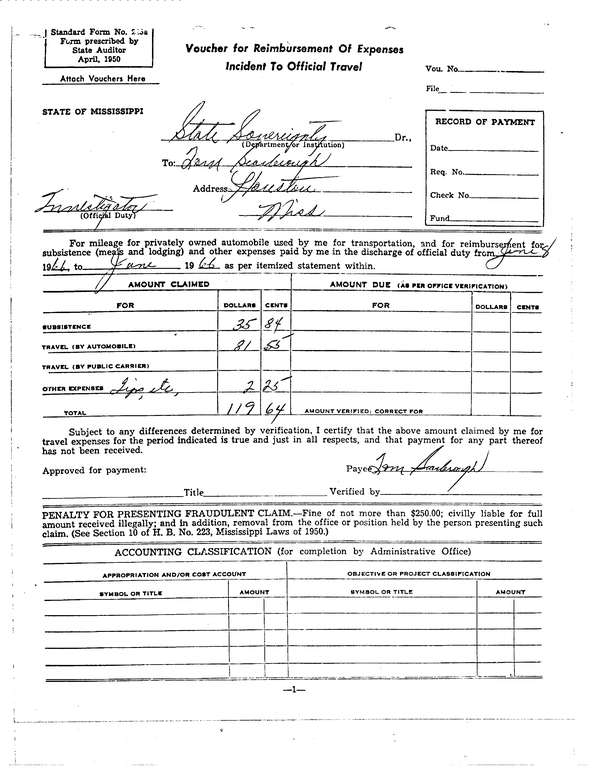 Standard Form No.
Form prescribed by
State Auditor
April, 1950
Attach Vouchers Here
Voucher for Reimbursement Of Expenses
Incident To Official Travel
Vou. No.
File
STATE OF MISSISSIPPI
State Sovereignty Dr.,
(Department or Institution)
To: Tom Scarbrough
Address Houston
Miss
Investigator
(Official Duty)
RECORD OF PAYMENT
Date
Req. No.
Check No.
Fund
For mileage for privately owned automobile used by me for transportation, and for reimbursement for
subsistence (meals and lodging) and other expenses paid by me in the discharge of official duty from June
1966, to June 1966 as per itemized statement within.
AMOUNT CLAIMED AMOUNT DUE (AS PER OFFICE VERIFICATION)
FOR DOLLARS CENTS FOR DOLLARS CENTS
SUBSISTENCE 35 84
TRAVEL (BY AUTOMOBILE) 81 55
TRAVEL (BY PUBLIC CARRIER)
OTHER EXPENSES Tips, etc, 2 25
TOTAL 119 64 AMOUNT VERIFIED; CORRECT FOR
Subject to any differences determined by verification, I certify that the above amount claimed by me for
travel expenses for the period indicated is true and just in all respects, and that payment for any part thereof
has not been received.
Approved for payment: Payee Tom Scarbrough
Title Verified by
PENALTY FOR PRESENTING FRAUDULENT CLAIM.—Fine of not more than $250.00; civilly liable for full
amount received illegally; and in addition, removal from the office or position held by the person presenting such
claim. (See Section 10 of H. B. No. 223, Mississippi Laws of 1950.)
ACCOUNTING CLASSIFICATION (for completion by Administrative Office)
APPROPRIATION AND/OR COST ACCOUNT OBJECTIVE OR PROJECT CLASSIFICATION
SYMBOL OR TITLE AMOUNT SYMBOL OR TITLE AMOUNT
—1—